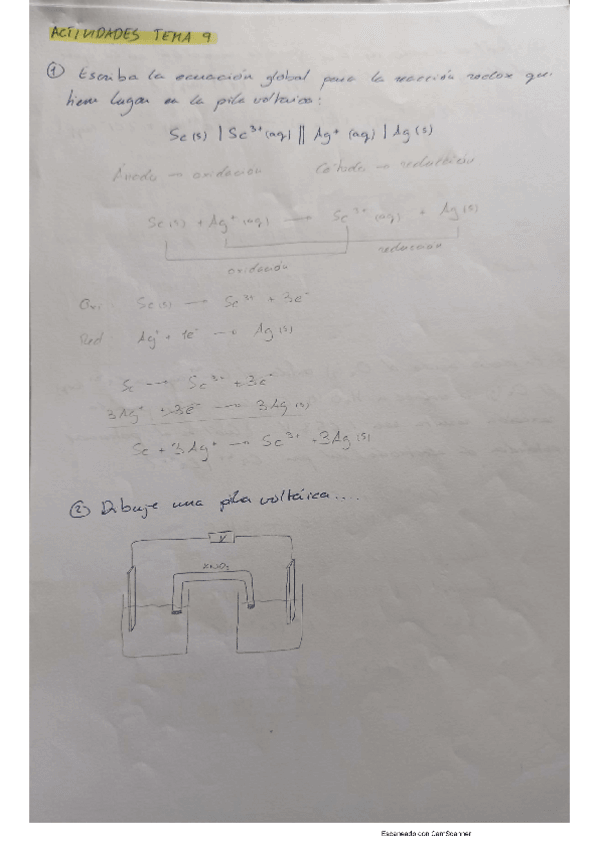 ACTIVIDADES TEMA 9
① Escriba la ecuación global para la reacción redox que
tiene lugar en la pila voltárica:
Sc(s) | Sc³⁺(aq) || Ag⁺ (aq) | Ag(s)
Ánodo → oxidación Cátodo → reducción
Sc(s) + Ag⁺(aq) → Sc³⁺(aq) + Ag(s)
reducción
oxidación
Oxi: Sc(s) → Sc³⁺ + 3e⁻
Red: Ag⁺ + 1e⁻ → Ag(s)
Sc → Sc³⁺ + 3e⁻
3Ag⁺ + 3e⁻ → 3Ag(s)
Sc + 3Ag⁺ → Sc³⁺ + 3Ag(s)
② Dibuje una pila voltárica....
V
KNO₃
Escaneado con CamScanner